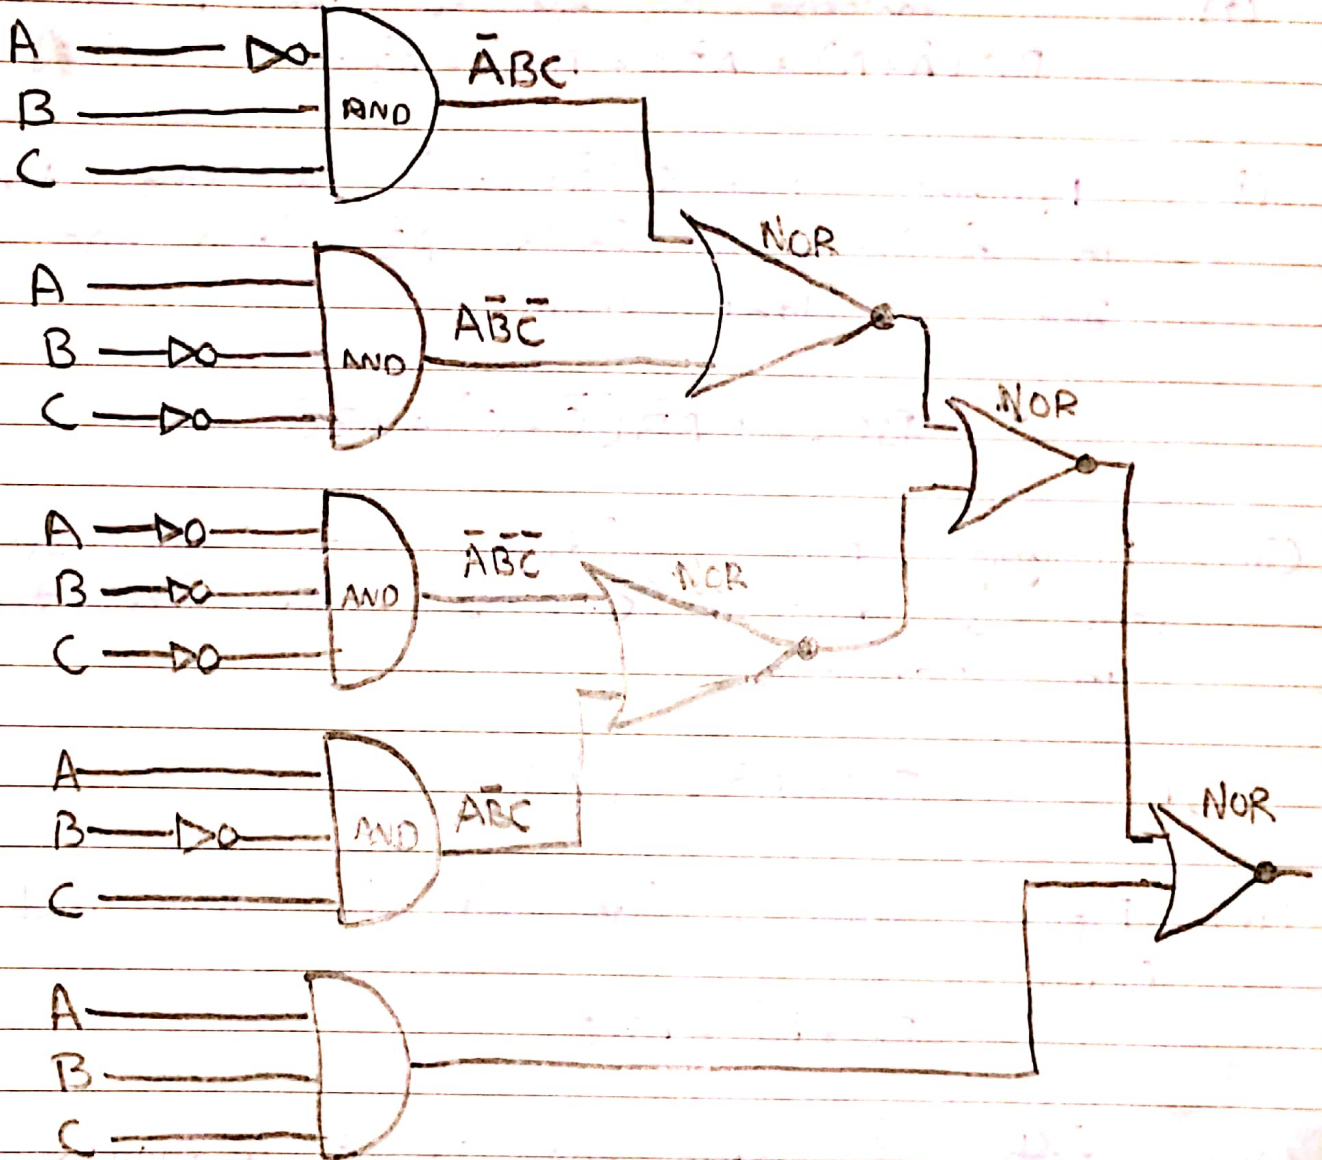 A
B
C
AND
ĀBC
A
B
C
AND
AB̄C̄
NOR
NOR
A
B
C
AND
ĀB̄C̄
NOR
A
B
C
AND
AB̄C
NOR
A
B
C